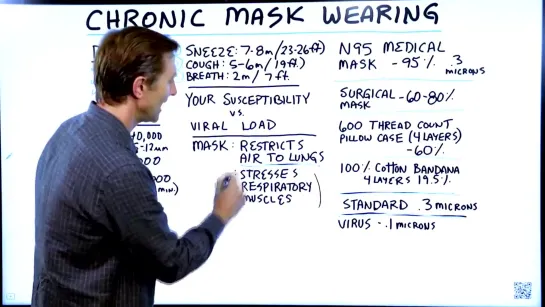 CHRONIC MASK WEARING
SNEEZE: 7-8m/(23-26ft.)
COUGH: 5-6m/(19ft.)
BREATH: 2m/7ft.
YOUR SUSCEPTIBILITY
VS.
VIRAL LOAD
MASK: RESTRICTS
AIR TO LUNGS
STRESSES
RESPIRATORY
MUSCLES
N95 MEDICAL
MASK - 95% .3
MICRONS
SURGICAL - 60-80%
MASK
600 THREAD COUNT
PILLOW CASE (4 LAYERS)
- 60%
100% COTTON BANDANA
4 LAYERS 19.5%
STANDARD .3 MICRONS
VIRUS - .1 MICRONS